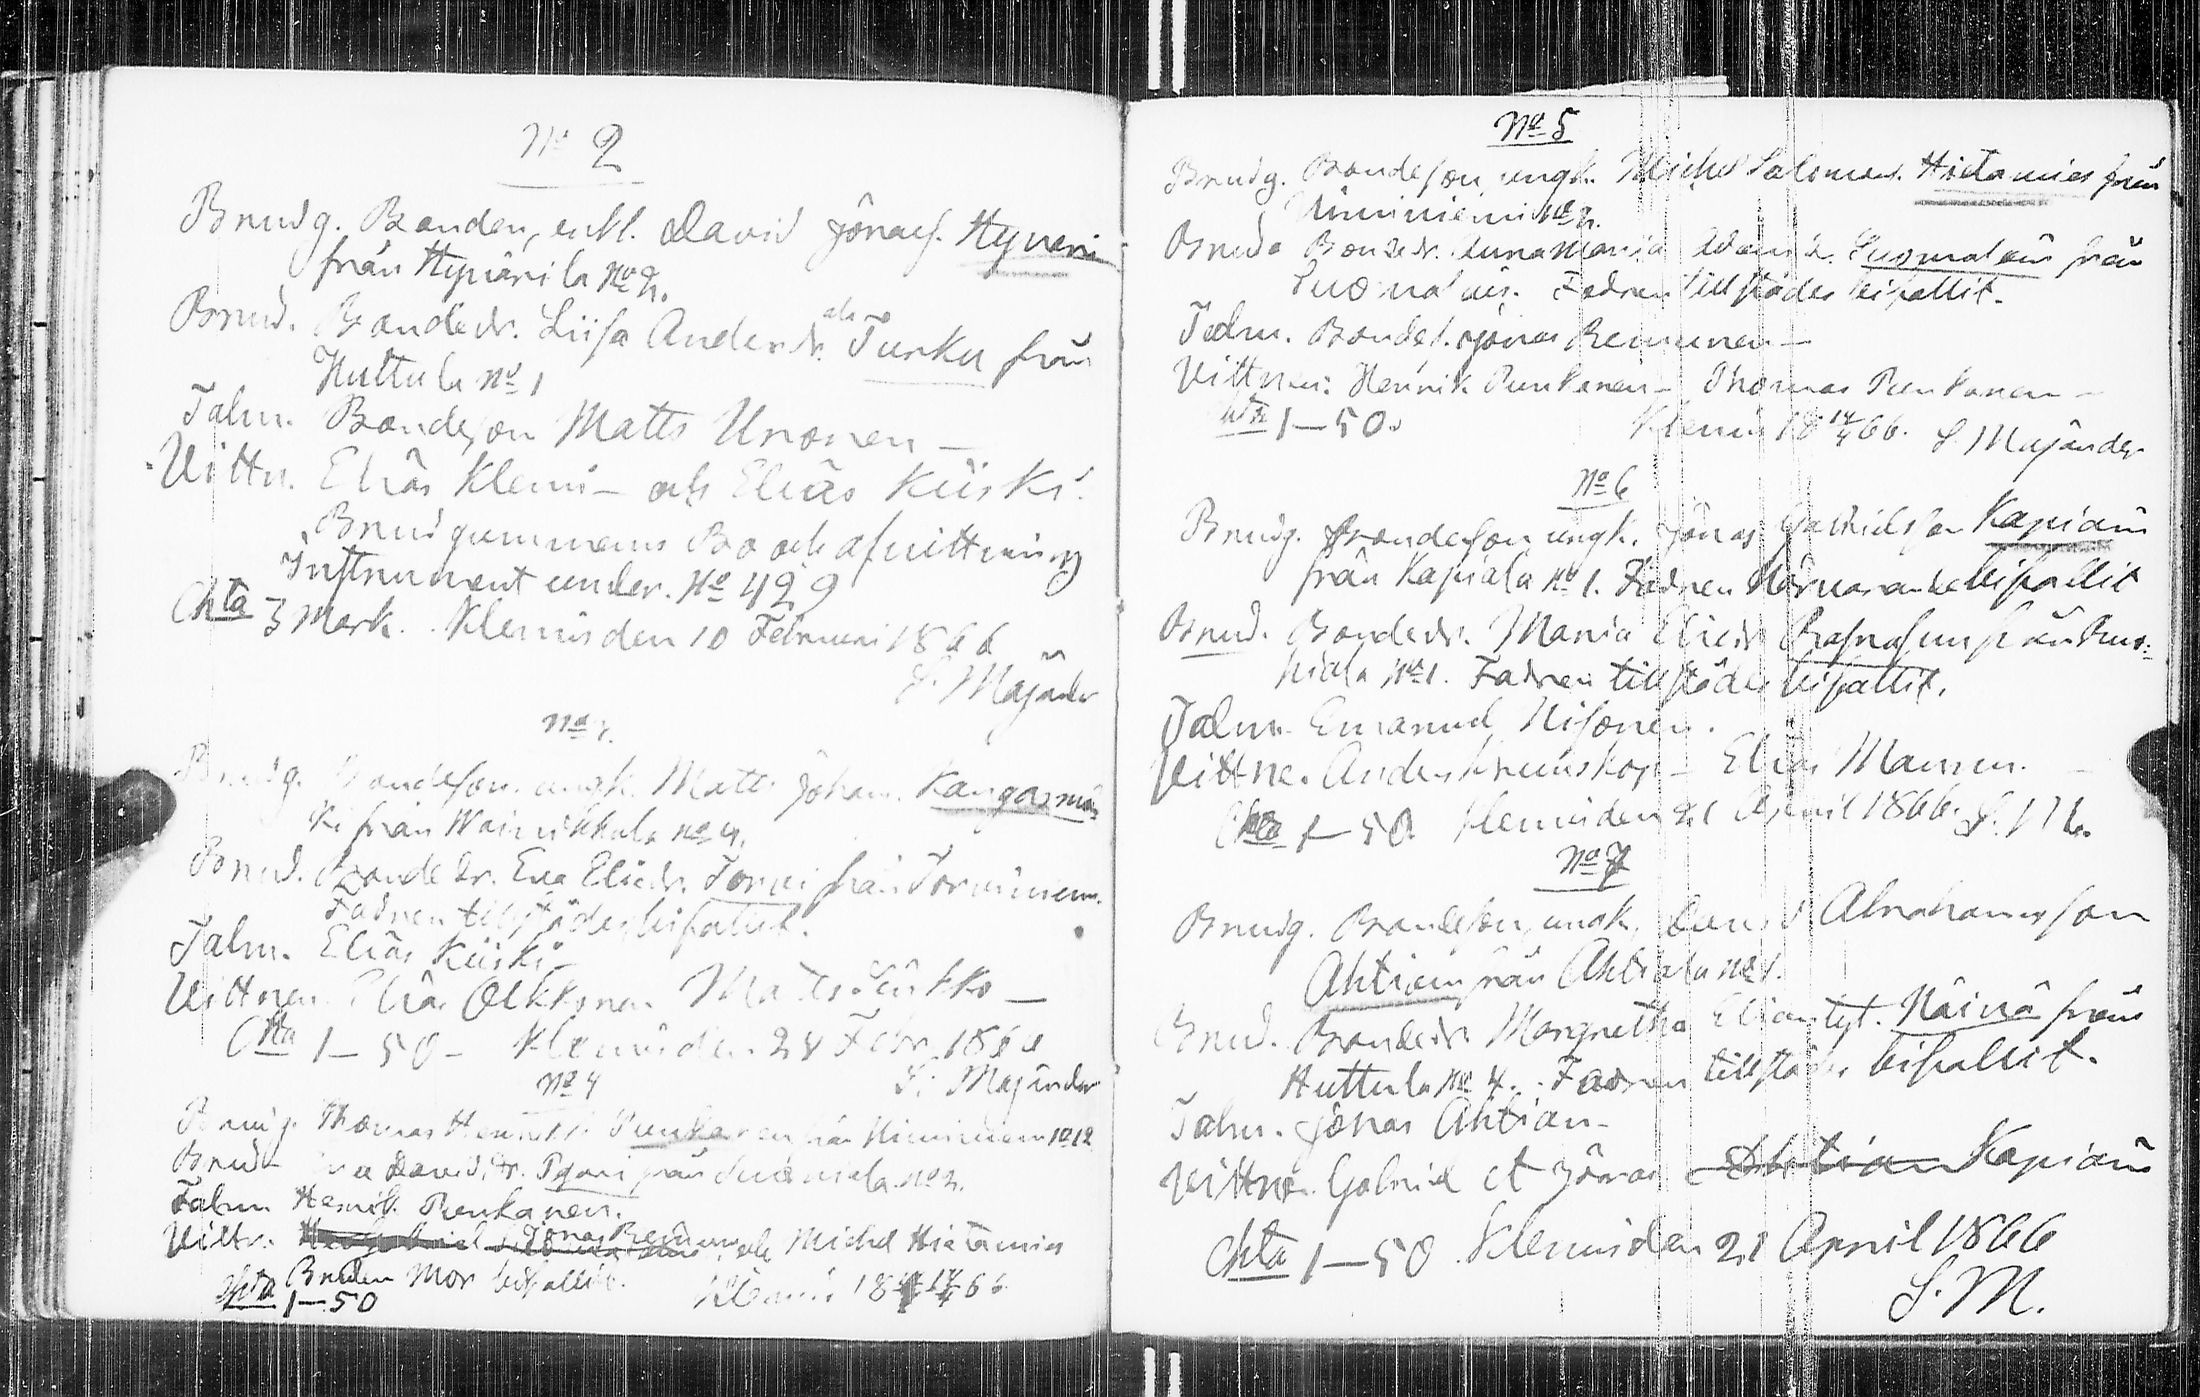 No 2
Brudg. Bonden, enkl. David Jönasf. Hyneri
från Hyiärila No 2.
Brud. Bondedr. Liisa Andersdr. Turku från
Huttula No 1
Talm. Bondeson Matts Unonen —
Vittn. Eliäs Klemi — och Eliäs Kiiski.
Brudgummens Bo och afvittning
Instrument under No 429
Chta 3 Mark. Klemis den 10 Februari 1866
S. Majander
No 3.
Brudg. Bondeson ungk. Matts Johan. Kangasmä
ki från Wainikkala No 4.
Brud. Bondedr. Eva Eliedr. Torvi från
Fadren tillstädes bifallit.
Talm. Eliäs Kiiski —
Vittnen Eliäs Olkkonen Matts —
Chta 1—50— Klemis den 28 Febr. 1866
S. Majander
No 4
Brudg. Thomas Henriksf. Punkanen från Niminiemi No 12
Brud Davidsdr. från No 2.
Talm. Henrik Punkanen.
Vittn. Jonas Remunen och Michel Hietamies
Brudens Mor bifallit. Klemis 18 14/4 66
Chta 1—50
No 5
Brudg. Bondeson, ungk. Michel Salomonsf. Hietamies från
Niminiemi No 2.
Brud Bondedr. Anna Maria Adamsdr. Suomalain från
Fadren tillstädes bifallit.
Talm. Bondes. Jönas Remunen —
Vittnen: Henrik Punkanen — Thomas Punkanen —
Chta 1—50. Klemis 18 14/4 66. S Majander
No 6
Brudg. Bondeson ungk. Jönas Gabrielsson Kapiain
från Kapiala No 1. Fadren Närvarande bifallit
Brud. Bondedr. Maria Eliedr från
No 1. Fadren tillstädes bifallit.
Talm. Emanuel Nisonen.
Vittne. Anders — Eliäs Manen. —
Chta 1—50. Klemis den 21 April 1866. S. M.
No 7
Brudg. Bondeson, ungk. David Abrahamsson
Ahtiain från Ahtiala No 1.
Brud. Bondedr. Margretha Eliantyt. Näivä från
Huttula No 4. Fadren tillstädes bifallit.
Talm. Jönas Ahtian —
Vittne. Gabriel et Jönas Ahtian Kapiain
Chta 1—50 Klemis den 21 April 1866
S. M.